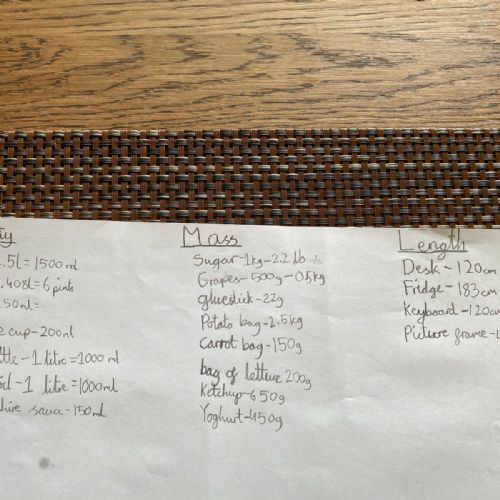 ty
.5l = 1500ml
.408l = 6 pints
50ml =
cup - 200ml
tle - 1 litre = 1000 ml
oil - 1 litre = 1000ml
hire sauce - 150ml
Mass
Sugar - 1kg - 2.2 lb
Grapes - 500g - 0.5kg
gluestick - 22g
Potato bag - 2.5kg
Carrot bag - 150g
bag of lettuce 200g
Ketchup - 650g
Yoghurt - 450g
Length
Desk - 120cm
Fridge - 183cm
Keyboard - 120cm
Picture frame -